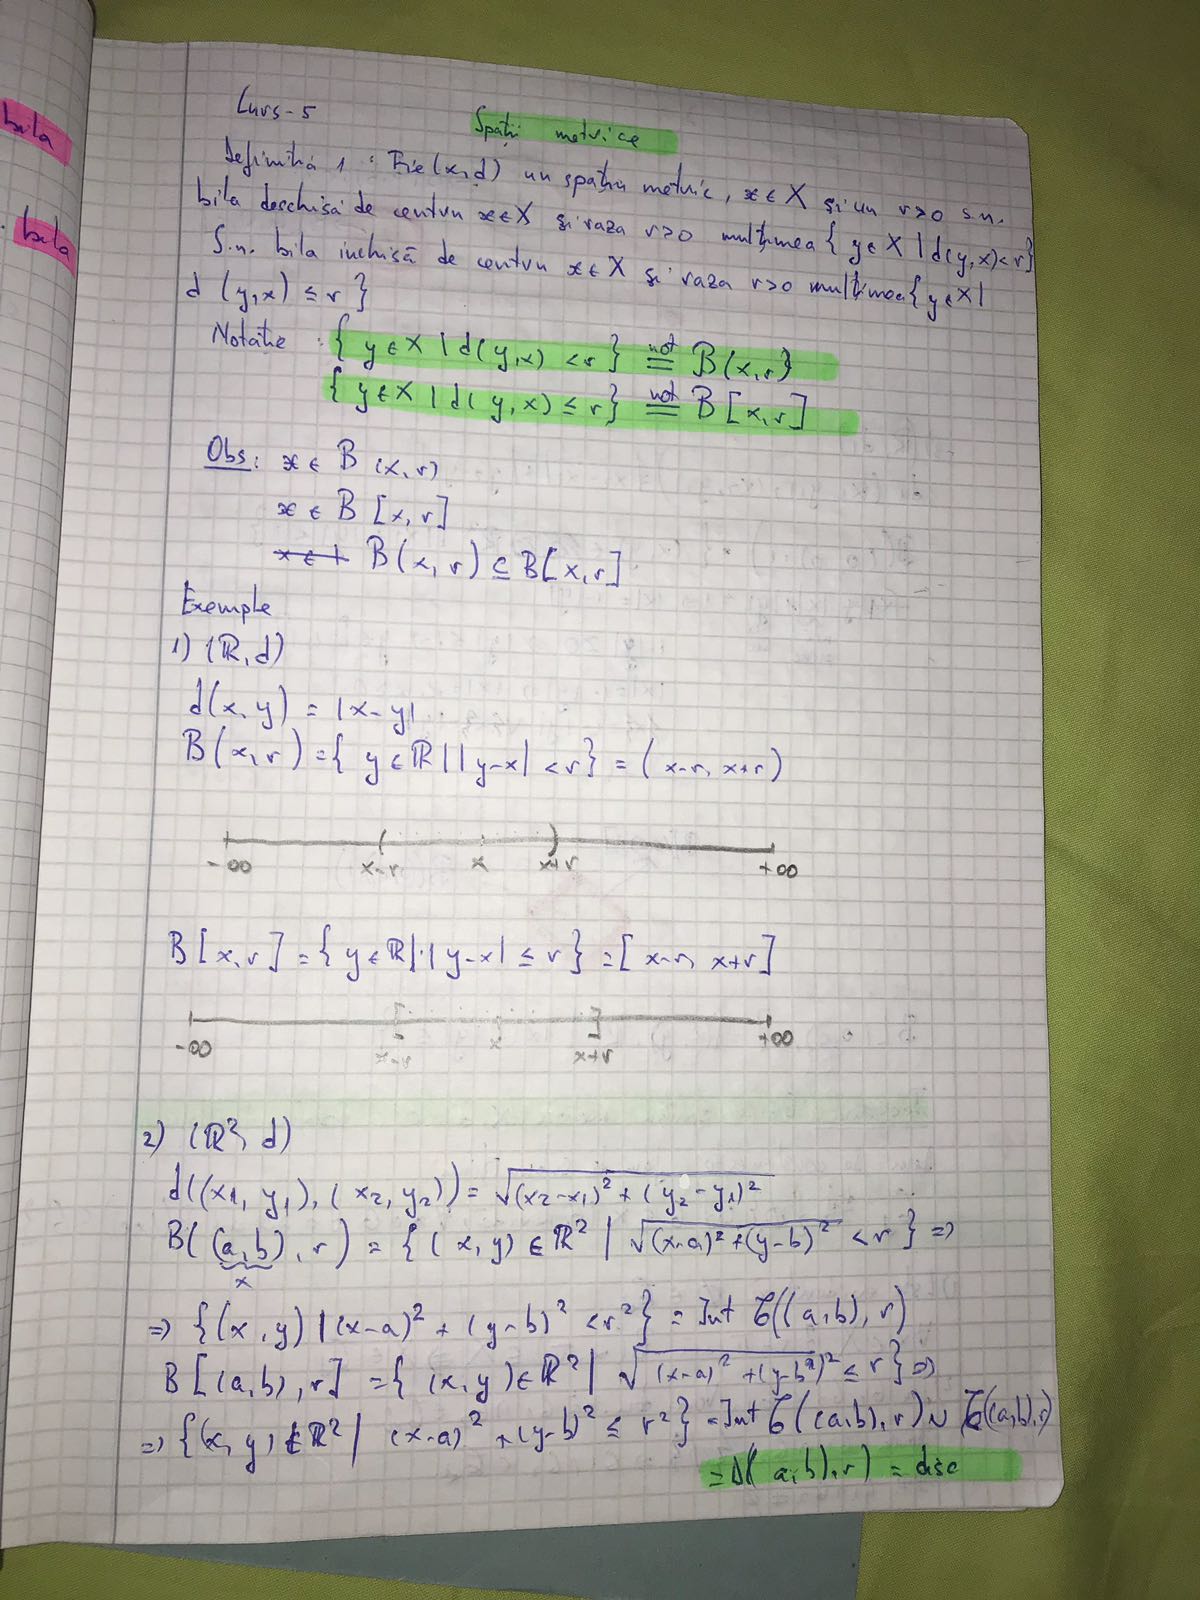 bila
bila
Curs-5
Spații metrice
Definitia 1 : Fie (x,d) un spațiu metric, x ∈ X și un r>0 s.n.
bila deschisă de centru x∈X și raza r>0 mulțimea { y∈X | d(y,x)<r}
S.n. bila inchisă de centru x∈X și raza r>0 mulțimea {y∈X|
d (y,x) ≤ r }
Notatie : { y∈X | d(y,x) <r} not≡ B(x,r)
{ y∈X | d(y,x) ≤ r} not≡ B[x,r]
Obs: x ∈ B (x,r)
x ∈ B [x,r]
B(x,r) ⊆ B[x,r]
Exemple
1) (ℝ,d)
d(x,y) = |x-y|
B(x,r) = { y∈ℝ | |y-x| <r} = (x-r, x+r)
-∞ x-r x x+r +∞
B[x,r] = { y∈ℝ | |y-x| ≤ r} = [x-r, x+r]
-∞ x-r x x+r +∞
2) (ℝ², d)
d((x1, y1), (x2, y2)) = √(x2-x1)² + (y2-y1)²
B((a,b), r) = { (x,y) ∈ ℝ² | √(x-a)² + (y-b)² < r } =>
x
=> {(x,y) | (x-a)² + (y-b)² < r²} = Int C((a,b), r)
B[(a,b), r] = { (x,y)∈ℝ² | √(x-a)² + (y-b)² ≤ r} =>
=> {(x,y) ∈ ℝ² | (x-a)² + (y-b)² ≤ r²} = Int C((a,b), r) ∪ C((a,b), r)
= D((a,b), r) = disc